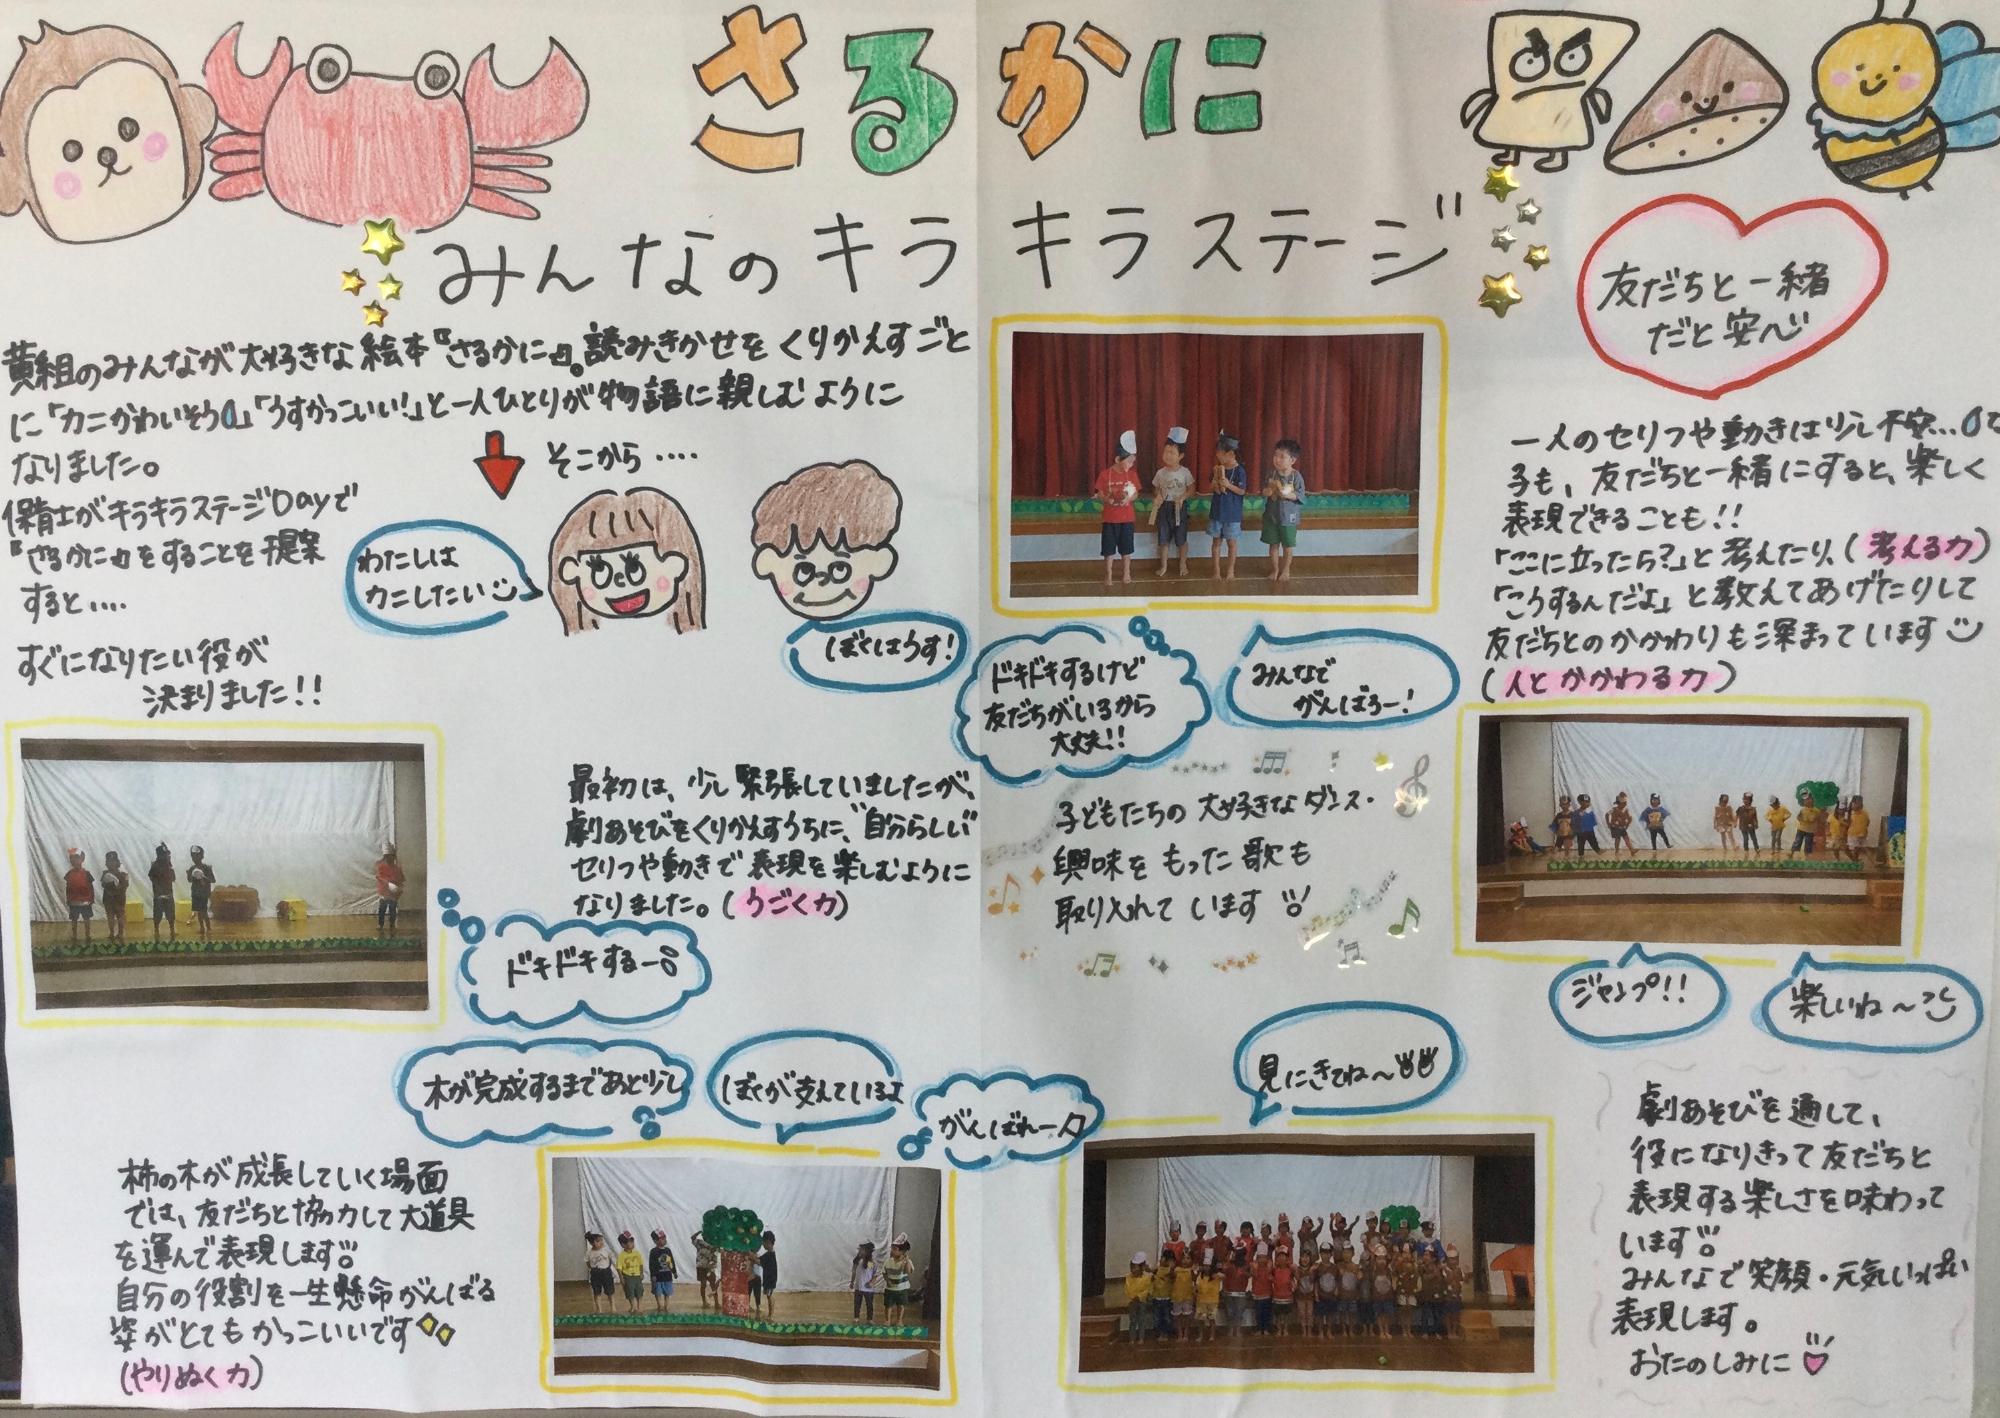 さるかに
みんなのキラキラステージ
黄組のみんなが大好きな絵本『さるかに』。読みきかせをくりかえすごと
に「カニかわいそう」「うすかっこいい！」と一人ひとりが物語に親しむように
なりました。
そこから‥‥
保育士がキラキラステージDayで
『さるかに』をすることを提案
すると‥‥
わたしは
カニしたい
ぼくはうす！
すぐになりたい役が
決まりました！！
最初は、少し緊張していましたが、
劇あそびをくりかえすうちに、"自分らしい"
セリフや動きで表現を楽しむように
なりました。(うごく力)
ドキドキするー
木が完成するまであと少し
ぼくが支えているよ
がんばれー
柿の木が成長していく場面
では、友だちと協力して大道具
を運んで表現します
自分の役割を一生懸命がんばる
姿がとてもかっこいいです
(やりぬく力)
友だちと一緒
だと安心
一人のセリフや動きは少し不安…な
子も、友だちと一緒にすると、楽しく
表現できることも！！
「ここに立ったら？」と考えたり、(考える力)
「こうするんだよ」と教えてあげたりして
友だちとのかかわりも深まっています
(人とかかわる力)
ドキドキするけど
友だちがいるから
大丈夫！！
みんなで
がんばろー！
子どもたちの大好きなダンス・
興味をもった歌も
取り入れています
ジャンプ！！
楽しいね～
見にきてね～
劇あそびを通して、
役になりきって友だちと
表現する楽しさを味わって
います
みんなで笑顔・元気いっぱい
表現します。
おたのしみに